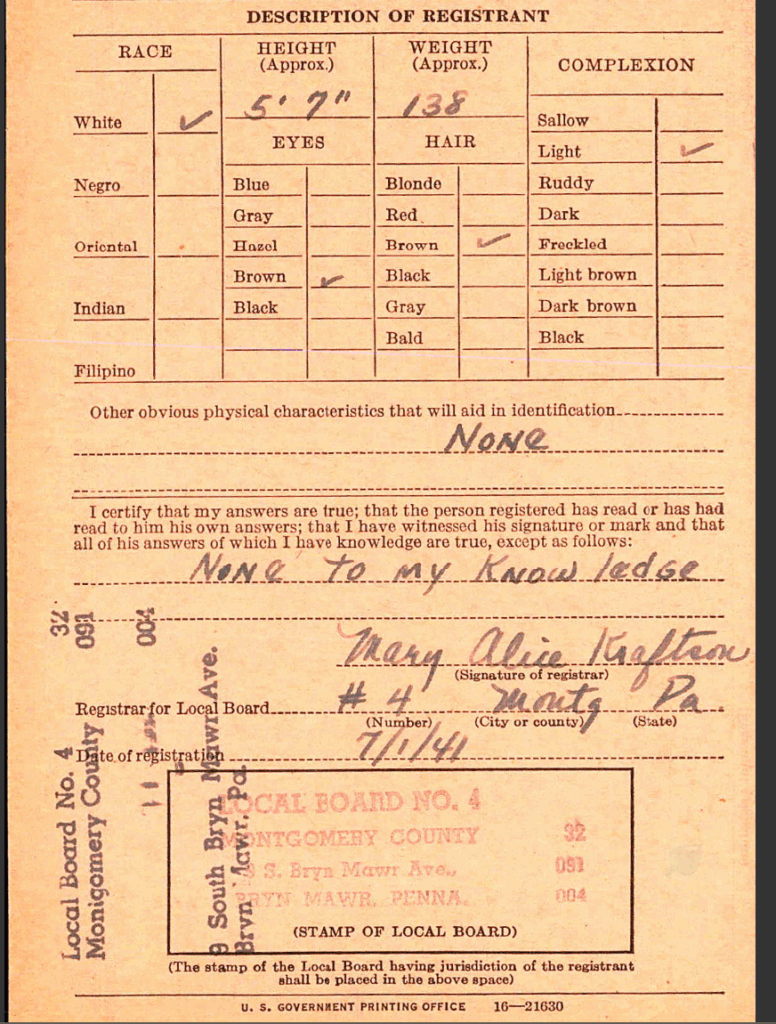 DESCRIPTION OF REGISTRANT
RACE
HEIGHT
(Approx.)
WEIGHT
(Approx.)
COMPLEXION
White ✓
5' 7"
138
Sallow
EYES
HAIR
Light ✓
Negro
Blue
Blonde
Ruddy
Gray
Red
Dark
Oriental
Hazel
Brown ✓
Freckled
Brown ✓
Black
Light brown
Indian
Black
Gray
Dark brown
Bald
Black
Filipino
Other obvious physical characteristics that will aid in identification
None
I certify that my answers are true; that the person registered has read or has had
read to him his own answers; that I have witnessed his signature or mark and that
all of his answers of which I have knowledge are true, except as follows:
None to my Knowledge
Mary Alice Kraftson
(Signature of registrar)
Registrar for Local Board # 4 Montg Pa
(Number) (City or county) (State)
Date of registration 7/1/41
32
091
004
Local Board No. 4
Montgomery County
9 South Bryn Mawr Ave.
Bryn Mawr, Pa.
LOCAL BOARD NO. 4
MONTGOMERY COUNTY 32
9 S. Bryn Mawr Ave., 091
BRYN MAWR, PENNA. 004
(STAMP OF LOCAL BOARD)
(The stamp of the Local Board having jurisdiction of the registrant
shall be placed in the above space)
U. S. GOVERNMENT PRINTING OFFICE 16—21630